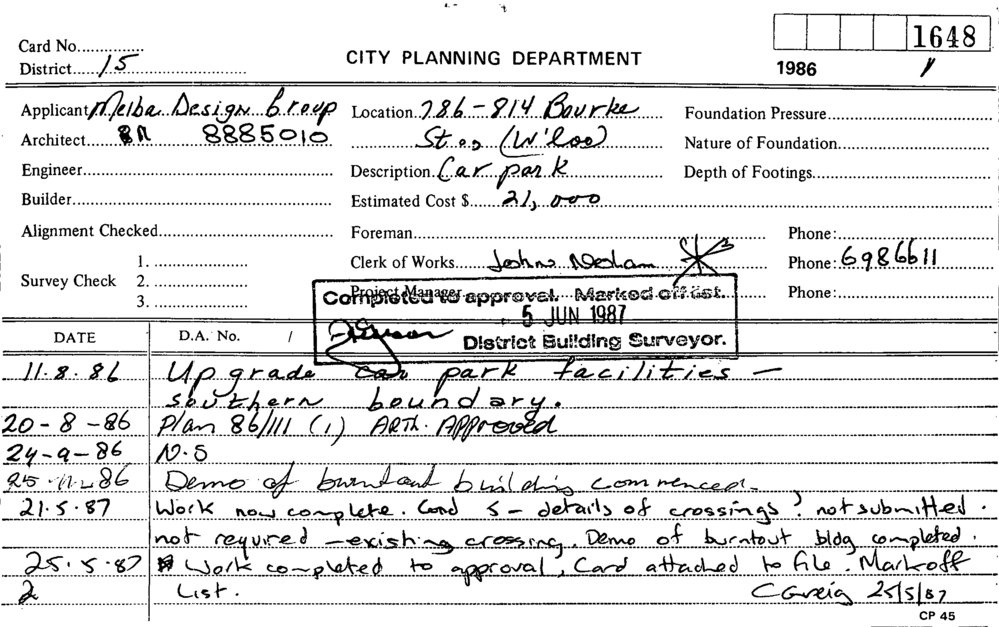 1648
Card No.
District 15
CITY PLANNING DEPARTMENT
1986
Applicant Melba Design Group
Location 786-814 Bourke
Foundation Pressure
Architect 8885010
St (W'loo)
Nature of Foundation
Engineer
Description Car park
Depth of Footings
Builder
Estimated Cost $ 21,000
Alignment Checked
Foreman
Phone:
Clerk of Works
Phone: 6986611
Survey Check 1.
2.
3.
Project Manager
Phone:
Completed to approval. Marked off list.
5 JUN 1987
District Building Surveyor.
DATE D.A. No. /
11.8.86 Upgrade car park facilities –
southern boundary.
20-8-86 Plan 86/111 (1) Approved
24-9-86 N.S
25-11-86 Demo of burntout building commenced.
21.5.87 Work now complete. Cond 5 - details of crossings? not submitted.
not required - existing crossing. Demo of burntout bldg completed.
25.5.87 Work completed to approval, Card attached to file. Mark off
2 List. C Greig 25/5/87
CP 45